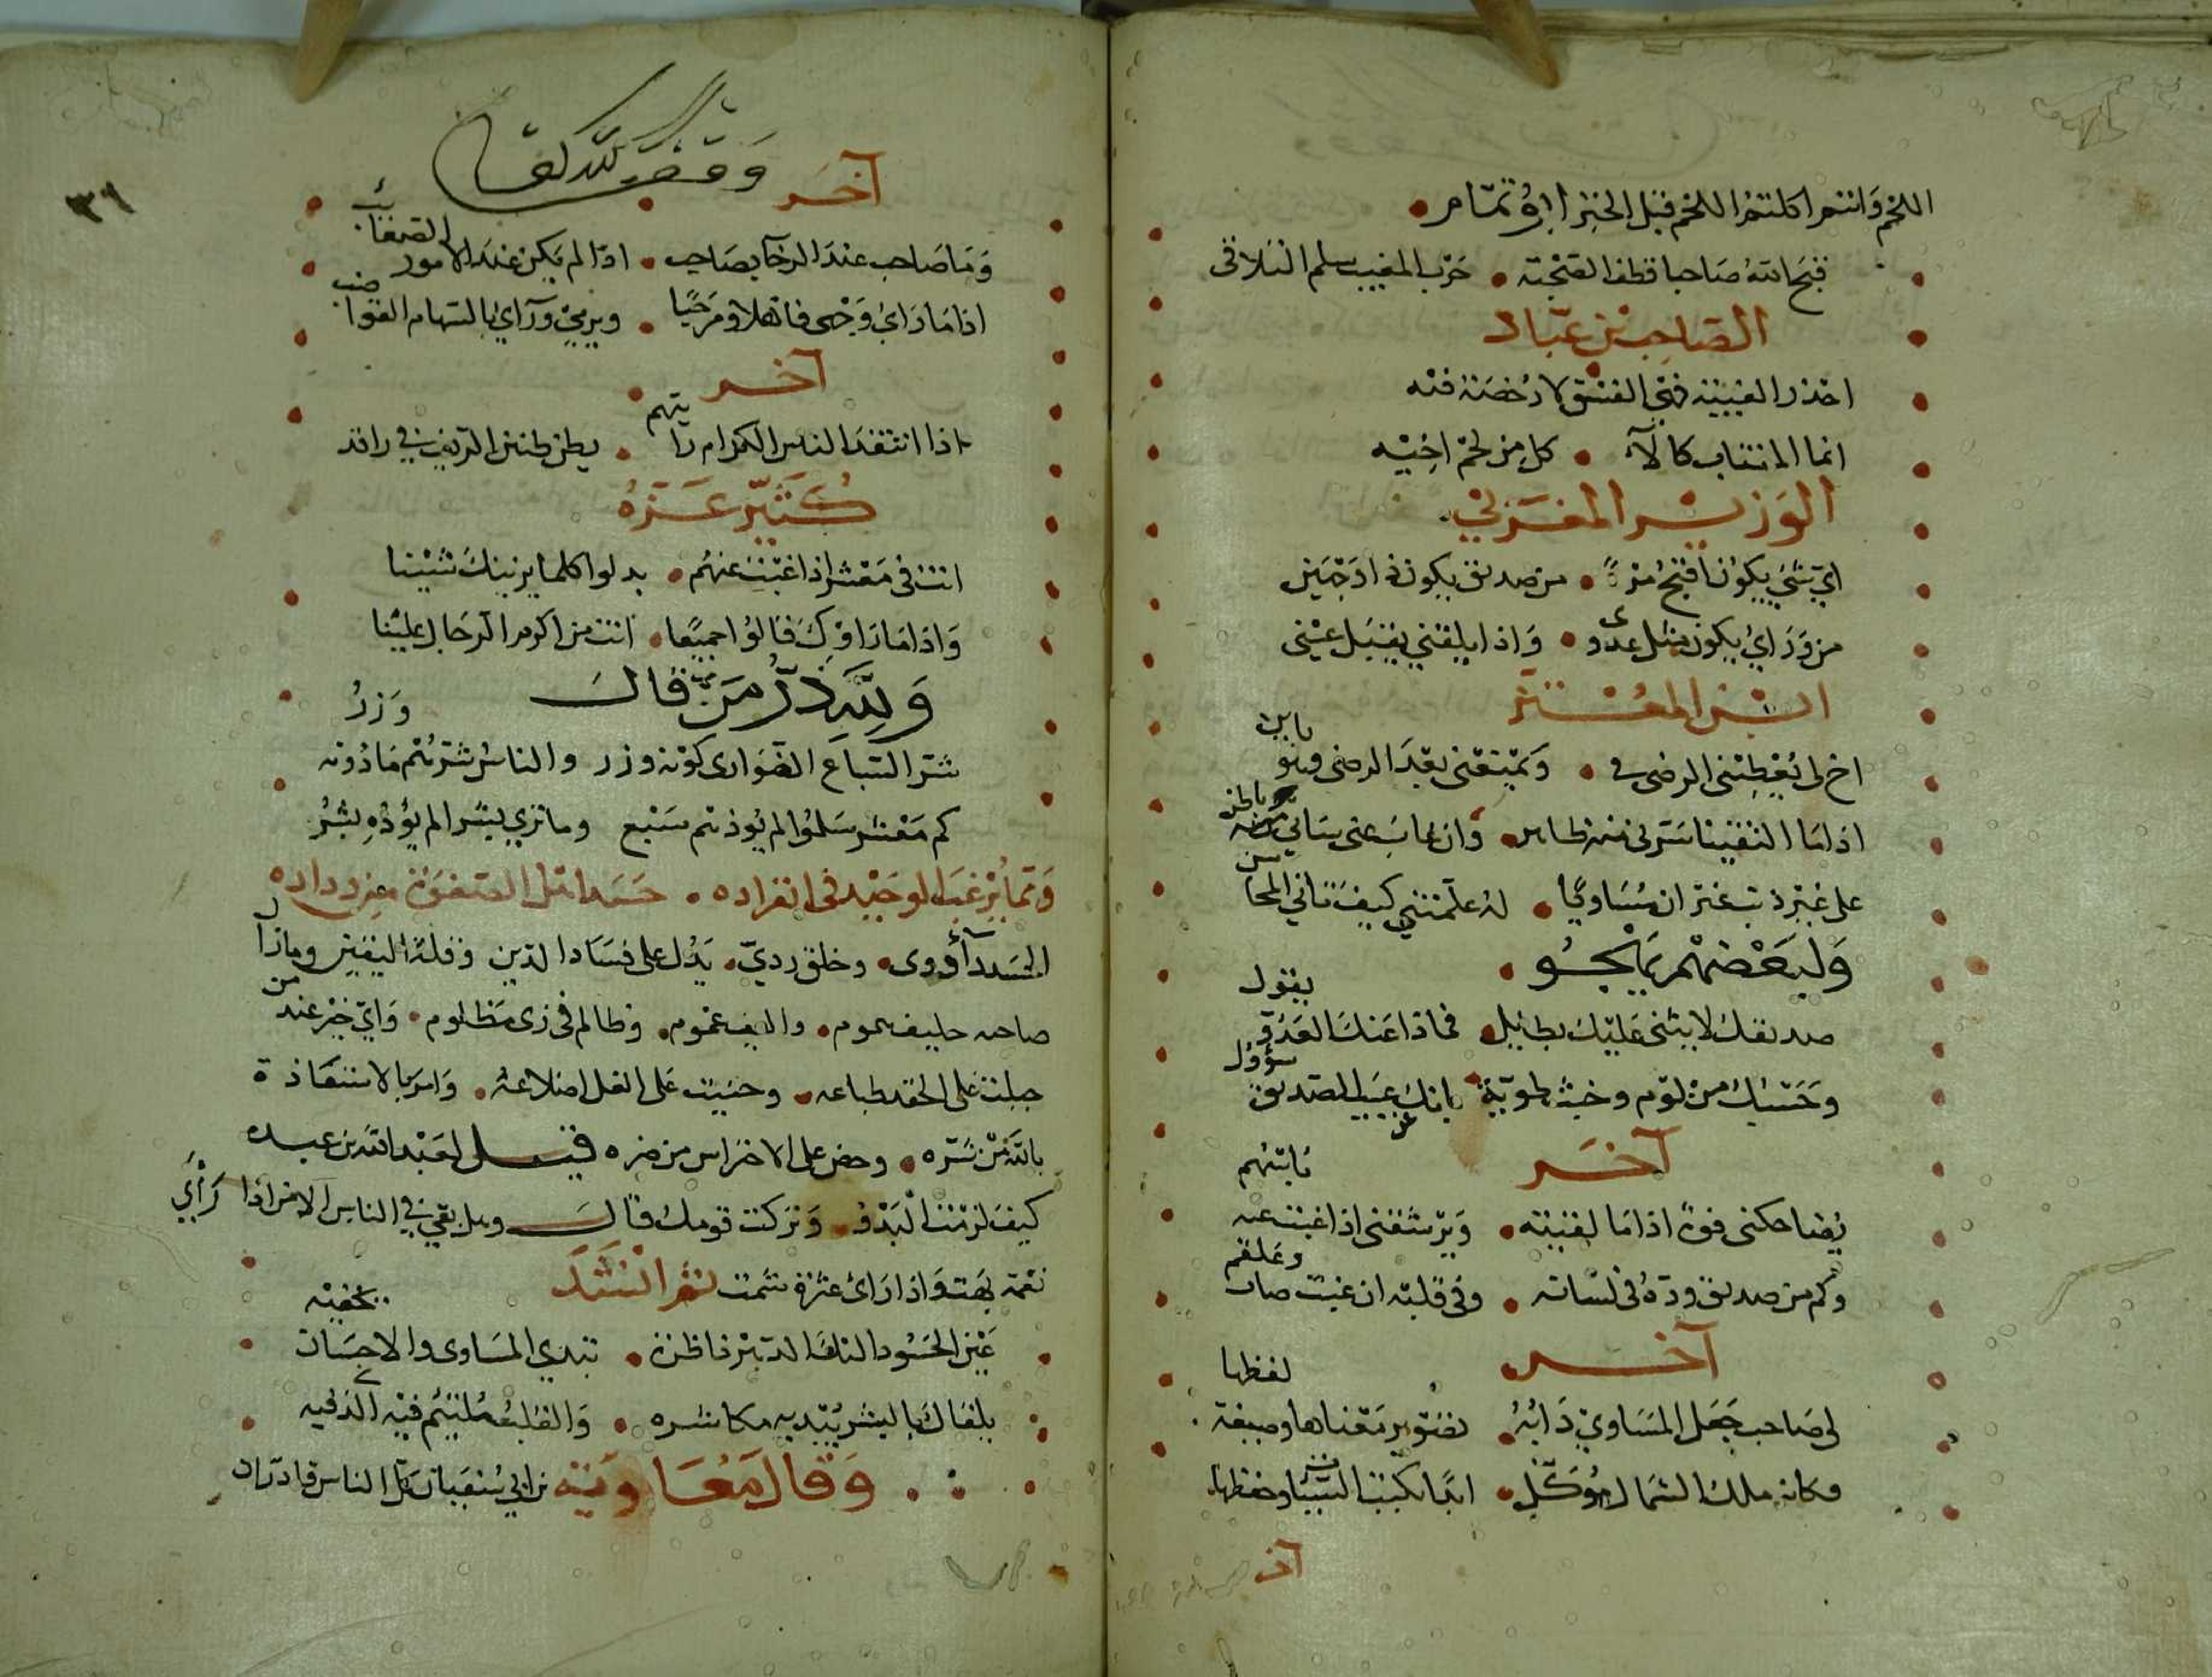 اللحم وانتم اكلتم اللحم قبل الخبز ابو تمام
قبح الله صاحبا قط الصحبة حرب المغيب سلم التلاقى
الصاحب بن عباد
احذر الغيبة فهى الفسق لا رخصة فيه
انما المغتاب كالآ كل من لحم اخيه
الوزير المغربي
اي شئ يكون اقبح من صديق يكون ذا وجهين
من ورائ يكون مثل عدو واذا يلقني يقبل عيني
ابن المعتز
اخ لى يعطينى الرضى فى ويمنعنى بعد الرضى وهو باين
اذا ما التقينا سرنى منه ظاهر وان غاب عنى ساني منه باطن
على غير ذنب غير ان مساويا له علمتني كيف تاتي المحاسن
ولبعضهم يهجو
صديقك لا يثنى عليك بطايل فماذا عنك العدو يقول
وحسبك من لوم وخبث طوية بانك عن عيب الصديق سؤول
آخر
يضاحكنى فوه اذا ما لقيته ويرشقنى اذا غبت عنه باسهم
وكم من صديق وده فى لسانه وفى قلبه ان غبت صاب وعلقم
آخر
لى صاحب جعل المساوي دابه تصوير معناها وصيغة لفظها
وكانه ملك الشمال موكل ابدا بكتب السيئات وحفظها
آخر
وقف لله تعالى
آخر
٣٦
وما صاحب عند الرخا بصاحب اذا لم يكن عند الامور الصعائب
اذا ما رائ وجهى فاهلا ومرحبا ويرمي ورائ بالسهام القواضب
آخر
اذا انتقد الناس الكرام رايتهم يطن طنين الزيف في راقد
كثير عزه
انت فى معشر اذا غبت عنهم بدلوا كلما يزينك شينا
واذا ما راوك قالوا جميعا انت من اكرم الرجال علينا
ولله در من قال
شر السباع الضوارى دونه وزر والناس شرهم ما دونه وزر
كم معشر سلموا لم يوذهم سبع وما ترى بشرا لم يؤذه بشر
ومما يرغب الوحيد فى انفراده حسد اهل الصفوة من وداده
الحسد دآ دوى وخلق ردي يدل على فساد الدين وقلة اليقين وما زال
صاحبه حليف هموم واليف غموم وظالم فى زى مظلوم واي خير عند من
جبلت على الحقد طباعه وحنيت على الغل اضلاعه وامر بالاستعاذة
بالله من شره وحض على الاحتراس من ضره قيل لعبد الله بن عبده
كيف لزمت البدو وتركت قومك قال وهل بقي في الناس الا من اذا راي
نعمة بهت واذا رائ عثرة شمت ثم انشد
عين الحسود اليك الدهر ناظرة تبدي المساوى والاحسان تخفيه
يلقاك بالبشر يبديه مكاشره والقلب ملتئم فيه الذى فيه
وقال معاوية بن ابي سفيان كل الناس قادر ان